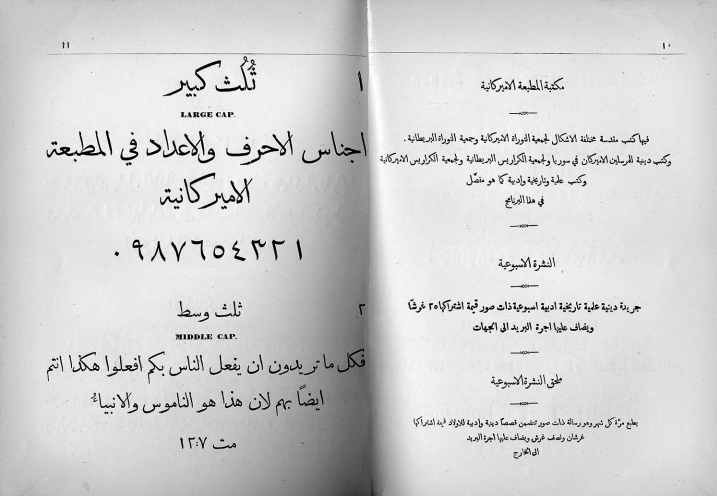 ١٠
مكتبة المطبعة الاميركانية
فيها كتب مقدسة مختلفة الاشكال لجمعية التوراة الاميركانية وجمعية التوراة البريطانية.
وكتب دينية للمرسلين الاميركان في سوريا ولجمعية الكراريس البريطانية ولجمعية الكراريس الاميركانية
وكتب علمية وتاريخية وادبية كما هو مفصّل
في هذا البرنامج
النشرة الاسبوعية
جريدة دينية علمية تاريخية ادبية اسبوعية ذات صور قيمة اشتراكها ٢٥ غرشًا
ويضاف عليها اجرة البريد الى الجهات
ملحق النشرة الاسبوعية
يطبع مرّة كل شهر وهو رسالة ذات صور تتضمن قصصًا دينية وادبية للاولاد قيمة اشتراكها
غرشان ونصف غرش ويضاف عليها اجرة البريد
الى الخارج
١١
١ ثُلُث كبير
LARGE CAP.
اجناس الاحرف والاعداد في المطبعة
الاميركانية
٠٩٨٧٦٥٤٣٢١
٢ ثلث وسط
MIDDLE CAP.
فكل ما تريدون ان يفعل الناس بكم افعلوا هكذا انتم
ايضًا بهم لان هذا هو الناموس والانبياءُ
مت ١٢:٧